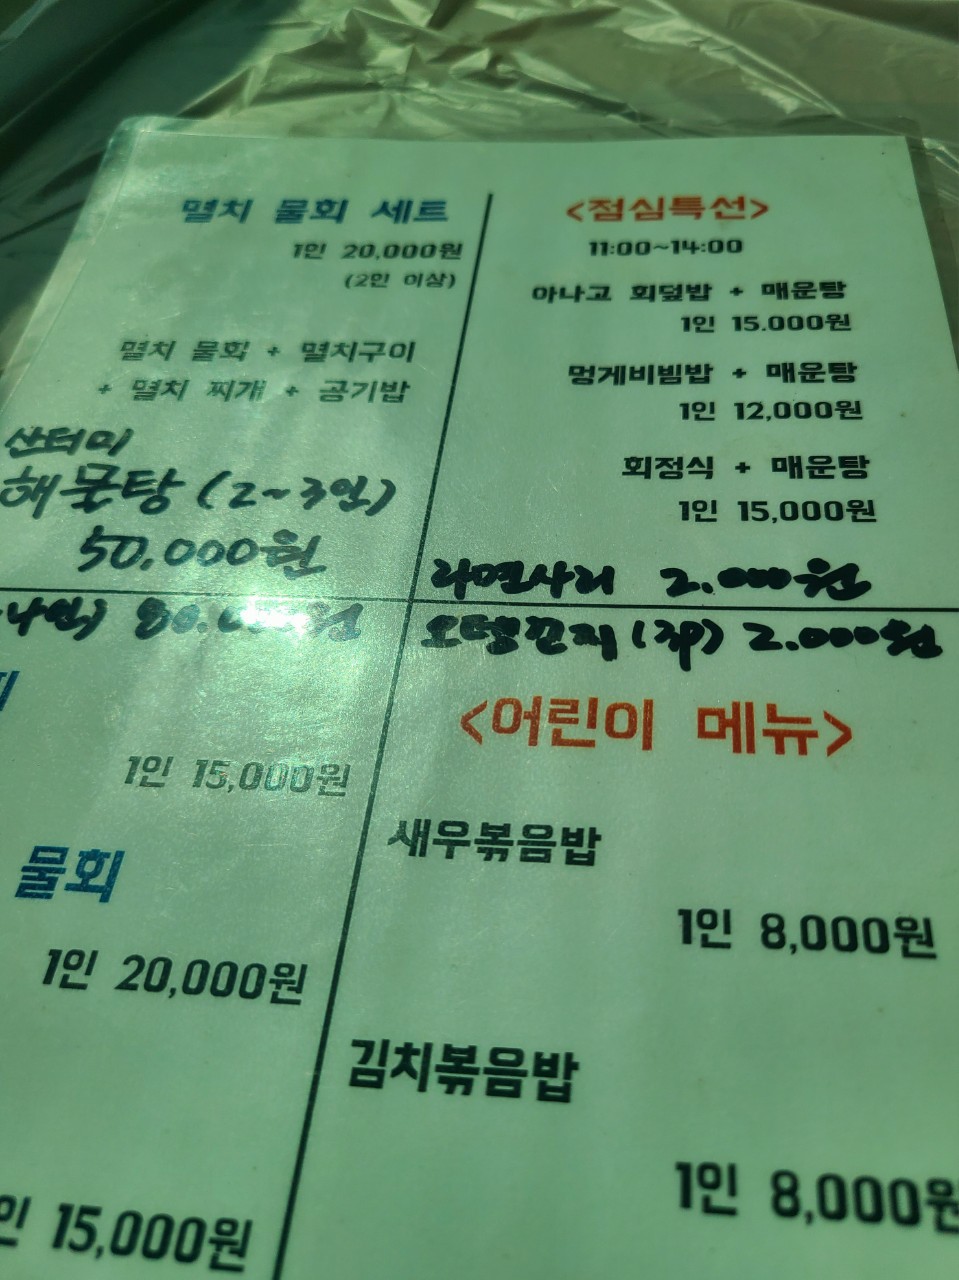 멸치 물회 세트
1인 20,000원
(2인 이상)
멸치 물회 + 멸치구이
+ 멸치 찌개 + 공기밥
산더미
해물탕 (2~3인)
50,000원
80,000원
1인 15,000원
물회
1인 20,000원
인 15,000원
<점심특선>
11:00~14:00
아나고 회덮밥 + 매운탕
1인 15.000원
멍게비빔밥 + 매운탕
1인 12,000원
회정식 + 매운탕
1인 15,000원
라면사리 2.000원
오뎅꼰지 (3p) 2.000원
<어린이 메뉴>
새우볶음밥
1인 8,000원
김치볶음밥
1인 8,000원